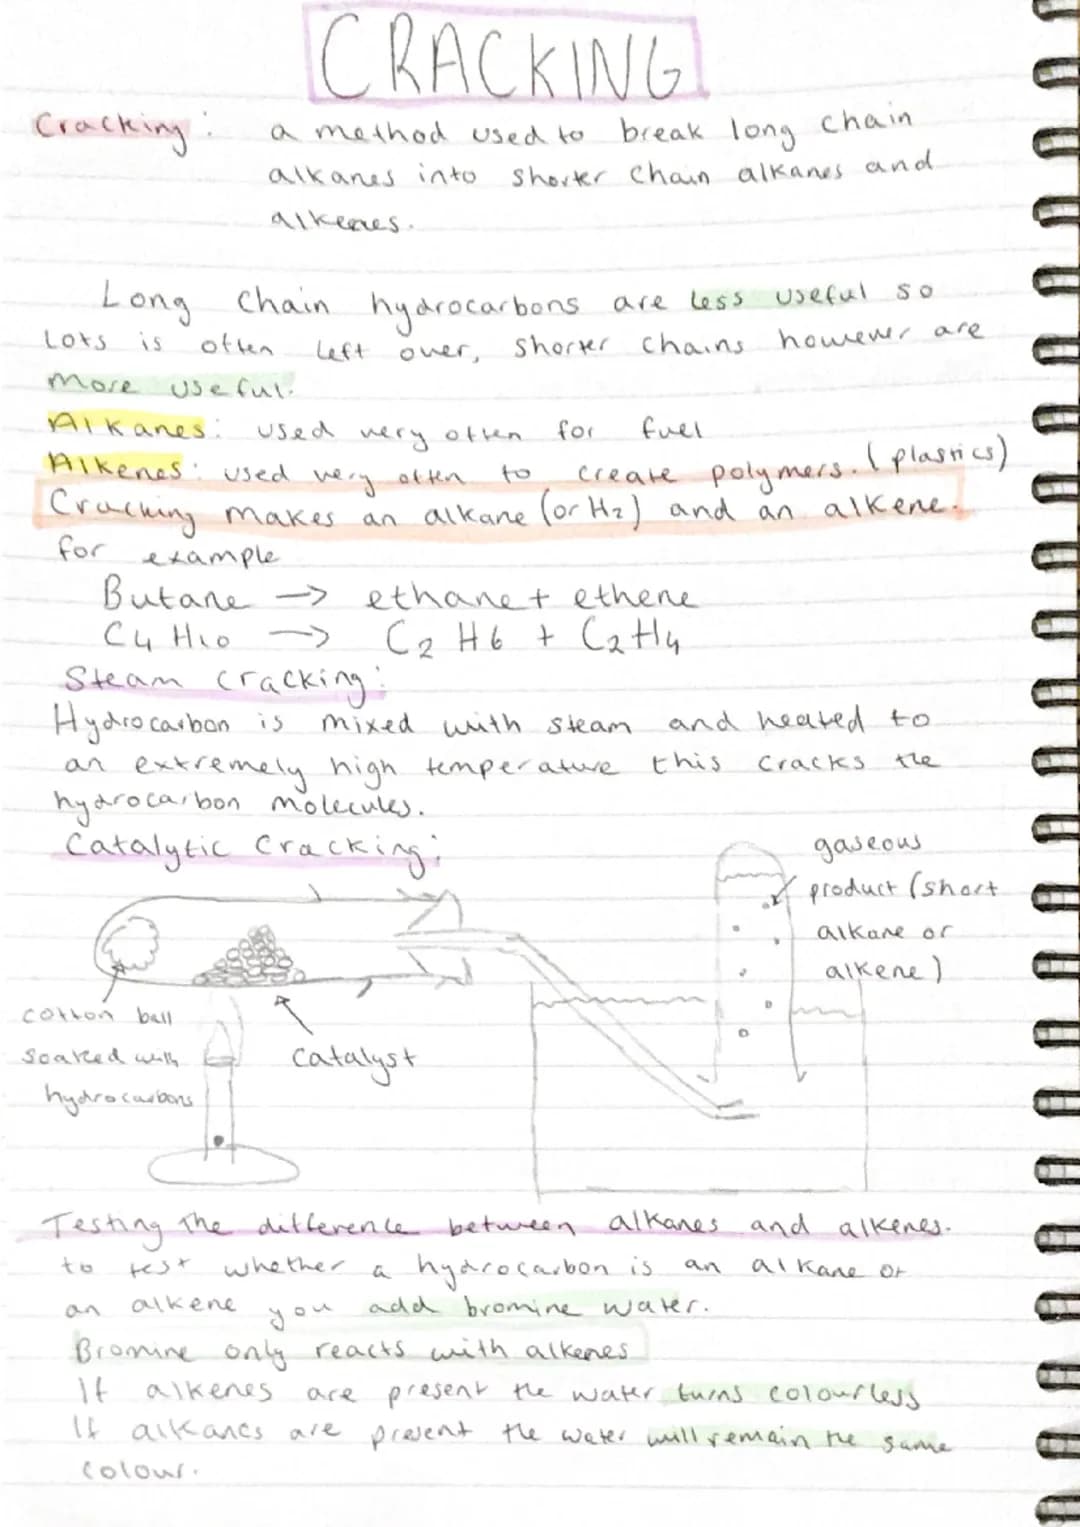 CRACKING
Cracking: a method used to break long chain
alkanes into shorter chain alkanes and
alkenes.
Long chain hydrocarbons are less useful so
Lots is often left over, shorter chains however are
more useful.
Alkanes: used very often for fuel
Alkenes: used very often to create polymers. (plastics)
Cracking makes an alkane (or H2) and an alkene.
for example
Butane → ethane + ethene
C4 H10 → C2 H6 + C2H4
Steam cracking:
Hydrocarbon is mixed with steam and heated to
an extremely high temperature this cracks the
hydrocarbon molecules.
Catalytic Cracking:
gaseous
product (short
alkane or
alkene)
cotton ball
soaked with
hydrocarbons
catalyst
Testing the difference between alkanes and alkenes.
to test whether a hydrocarbon is an alkane or
an alkene you add bromine water.
Bromine only reacts with alkenes
If alkenes are present the water turns colourless
If alkanes are present the water will remain the same
colour.